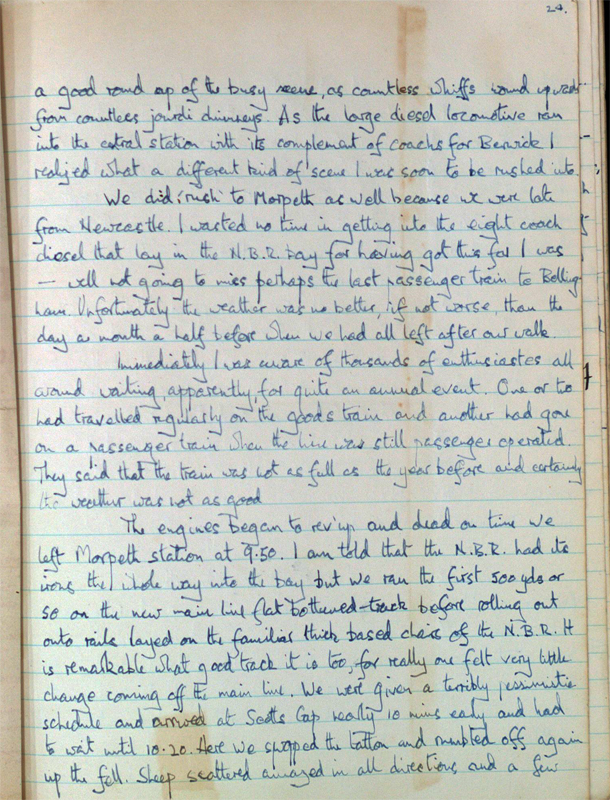 24.
a good round up of the busy scene, as countless whiffs wound upwards
from countless chimneys. As the large diesel locomotive ran
into the central station with its complement of coachs for Berwick I
realized what a different kind of scene I was soon to be rushed into.
We did rush to Morpeth as well because we were late
from Newcastle. I wasted no time in getting into the eight coach
diesel that lay in the N.B.R. bay for having got this far I was
— well not going to miss perhaps the last passenger train to Belling-
ham. Unfortunately the weather was no better, if not worse, than the
day a month a half before when we had all left after our walk.
Immediately I was aware of thousands of enthusiastes all
around waiting, apparently, for quite an annual event. One or to
had travelled regularly on the goods train and another had gone
on a passenger train when the line was still passenger operated.
They said that the train was not as full as the year before and certainly
the weather was not as good
The engines began to rev up and dead on time we
left Morpeth station at 9.50. I am told that the N.B.R. had its
irons the whole way into the bay but we ran the first 500 yds or
so on the new main line flat bottomed-track before rolling out
onto rails layed on the familiar thick based chairs of the N.B.R. It
is remarkable what good track it is too, for really one felt very little
change coming off the main line. We were given a terribly pessimistic
schedule and arrived at Scotts Gap nearly 10 mins early and had
to wait until 10.20. Here we swopped the batton and rumbled off again
up the fell. Sheep scattered amazed in all directions and a few